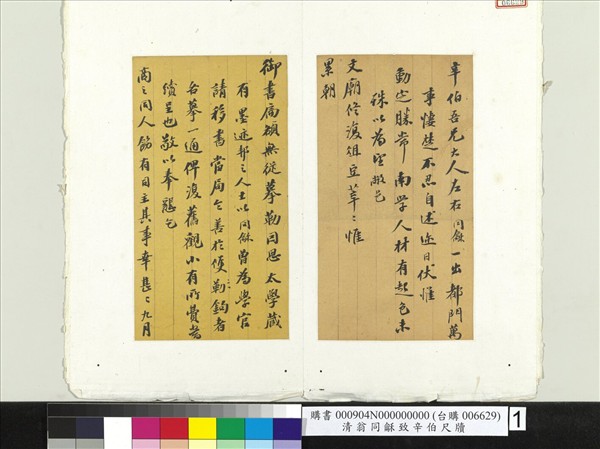 辛伯吾兄大人左右同龢一出都門萬
事悽楚不忍自述近日伏惟
動定勝常南學人材有起色未
殊以為空敝邑
文廟修復俎豆莘莘惟
累朝
御書扁額無從摹勒因思太學藏
有墨迹都之人士以同龢曾為學官
請移書當局令善於雙勒鉤者
各摹一通俾復舊觀小有所費當
續呈也敬以奉懇乞
商之同人筋有司主其事幸甚幸甚九月
購書 000904N000000000 (台購 006629)
清翁同龢致辛伯尺牘
1